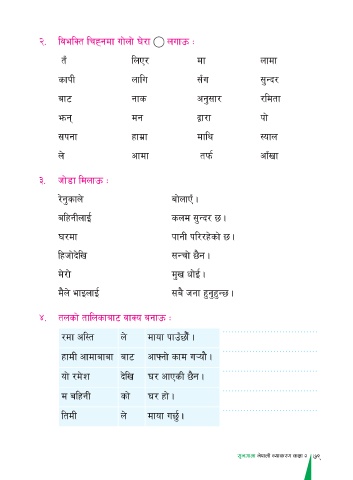 २. विभक्ति चिह्नमा गोलो घेरा लगाऊ :
तँ लिएर मा लामा
कापी लागि सँग सुन्दर
बाट नाक अनुसार रमिता
झन् मन द्वारा पो
सपना हाम्रा माथि स्याल
ले आमा तर्फ आँखा
३. जोडा मिलाऊ :
रेनुकाले बोलाएँ ।
बहिनीलाई कलम सुन्दर छ ।
घरमा पानी परिरहेको छ ।
हिजोदेखि सन्चो छैन ।
मेरो मुख धोई ।
मैले भाइलाई सबै जना हुनुहुन्छ ।
४. तलको तालिकाबाट वाक्य बनाऊ :
रमा अस्ति ले माया पाउँछौँ ।
हामी आमाबाबा बाट आफ्नो काम गर्‍यौ ।
यो रमेश देखि घर आएकी छैन ।
म बहिनी को घर हो ।
तिमी ले माया गर्छु ।
नेपाली व्याकरण कक्षा २ ७९